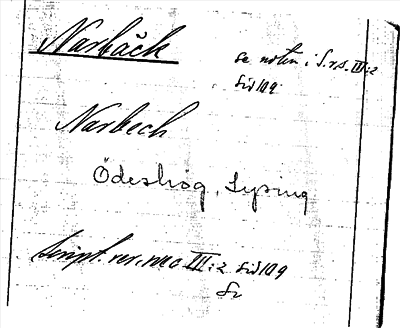 Narbäck
se noten i S.r.s. III:2
sid 109
Narbech
Ödeshög, Lysing
Script. rer. suec III:2 sid 109